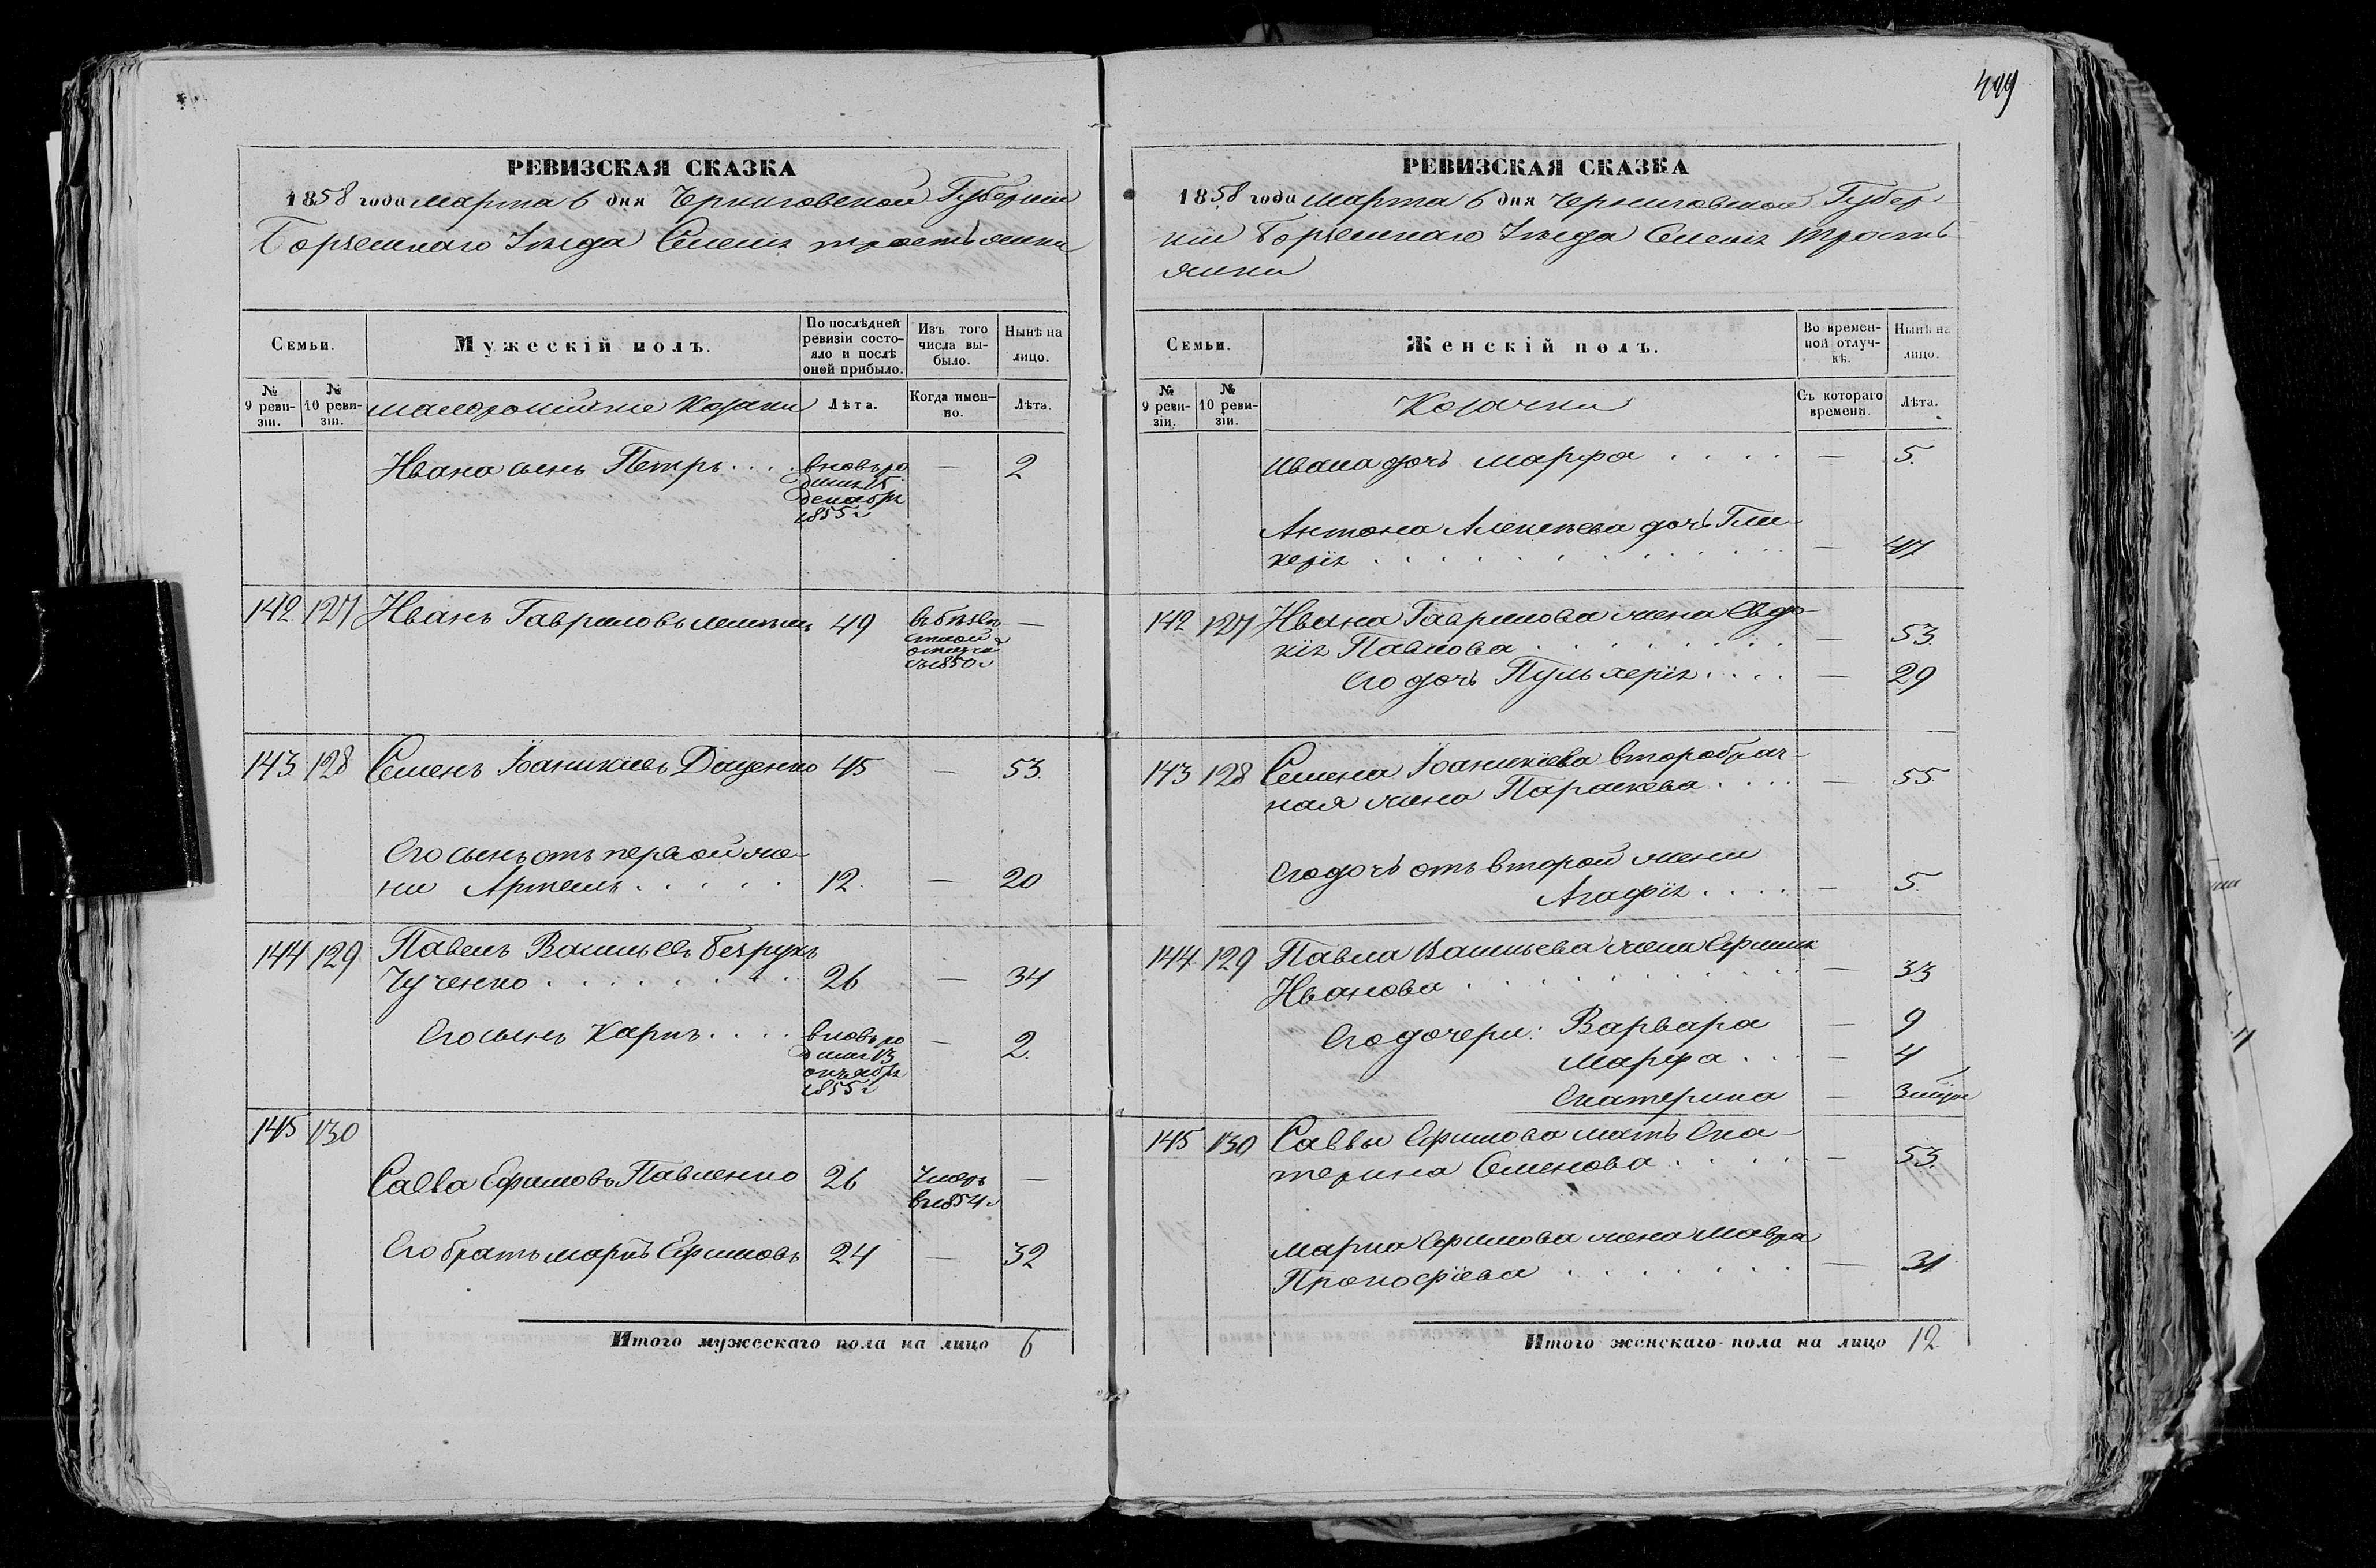 499
РЕВИЗСКАЯ СКАЗКА
1858 года марта 6 дня Черниговской Губернии
Борзенскаго Уезда Семенъ тростянки
Семьи.
Мужескій полъ.
По послѣдней ревизіи состояло и послѣ оной прибыло.
Изъ того числа выбыло.
Нынѣ на лицо.
№ 9 ревизіи.
№ 10 ревизіи.
малороссійскіе Козаки
Лѣта.
Когда именно.
Лѣта.
Ивана сынъ Петръ . . . . вновь ро — 2
15
декабря
1855 г
142 127 Иванъ Гавриловъ 49 въ безвѣ —
стной
отлучке
съ 1850 г
143 128 Семенъ Іоаникіевъ Даценко 45 — 53.
Его сынъ отъ первой же-
ни Артемъ . . . . . 12. — 20
144 129 Павелъ Васильевъ безрук
Чученко . . . . . . . . 26 — 34
Его сынъ Карпъ . . . . вновь ро — 2.
13
октября
1855 г
145 130
Савва Ефимовъ Павленко 26 Умеръ —
въ 1854 г
Его братъ марко Ефимовъ 24 — 32
Итого мужескаго пола на лицо 6
РЕВИЗСКАЯ СКАЗКА
1858 года марта 6 дня Черниговской Губер
нии Борзенскаго Уезда тростя
янки
Семьи.
Женскій полъ.
Во временной отлучкѣ.
Нынѣ на лицо.
№ 9 ревизіи.
№ 10 ревизіи.
Козачки
Съ котораго времени.
Лѣта.
Ивана дочь марфа . . . . — 5.
Антона Алексеева дочь Гли-
керія . . . . . . . . . . . — 47
142 127 Ивана Гаврилова жена Евдо-
кія Павлова . . . . . . . — 53.
Его дочь Пульхерія . . . . — 29
143 128 Семена Іоаникіева второбрач-
ная жена Параскева . . . . — 55
Его дочь отъ второй жени
Агафія . . . . — 5.
144 129 Павла Васильева жена
Иванова . . . . . . . . — 33
Его дочери: Варвара — 9
марфа . . . — 4
Екатерина —
145 130 Саввы Ефимова мать Ека-
терина Семенова . . . . . — 53.
марка Ефимова жена мавра
Прокофіева . . . . . . . — 31
Итого женскаго пола на лицо 12